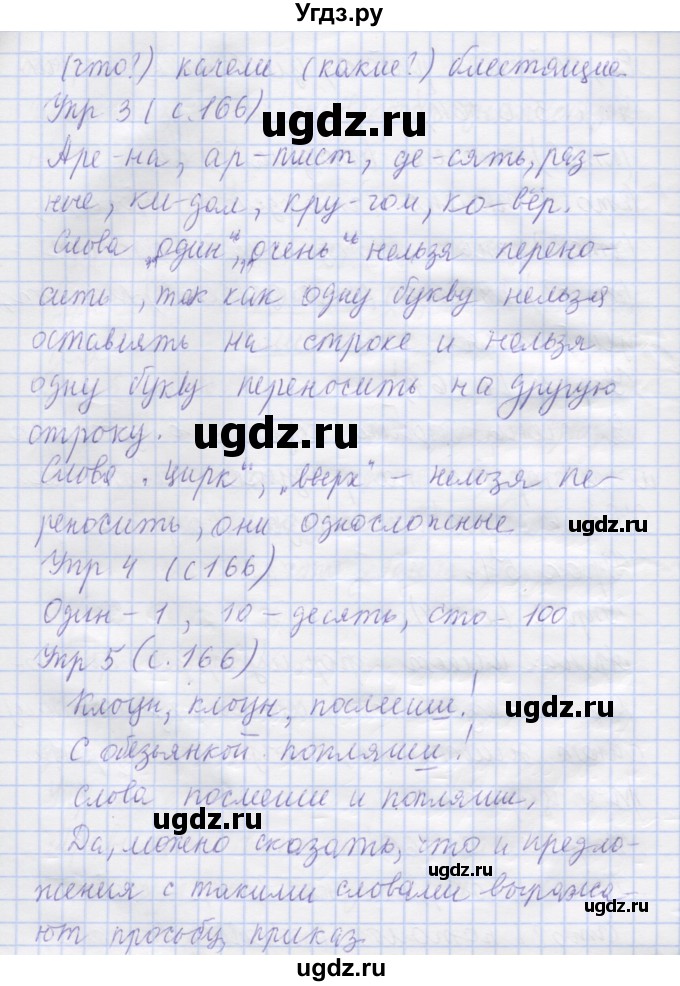 Угдз.ру
(что?) качели (какие?) блестящие.
Упр 3 (с.166)
ugdz.ru
Аре-на, ар-тист, де-сять, раз-
ные, ки-дал, кру-гом, ко-вёр.
Слова „один“, „очень“ нельзя перено-
сить, так как одну букву нельзя
оставлять на строке и нельзя
одну букву переносить на другую
строку.
ugdz.ru
Слова „цирк“, „вверх“ - нельзя пе-
реносить, они однословные
ugdz.ru
Упр 4 (с166)
Один - 1, 10 - десять, сто - 100
Упр 5 (с.166)
Клоун, клоун, посмеши!
ugdz.ru
С обезьянкой попляши!
Слова посмеши и попляши.
ugdz.ru
Да, можно сказать, что и предло-
жения с такими словами выража-
ugdz.ru
ют просьбу, приказ
ugdz.ru